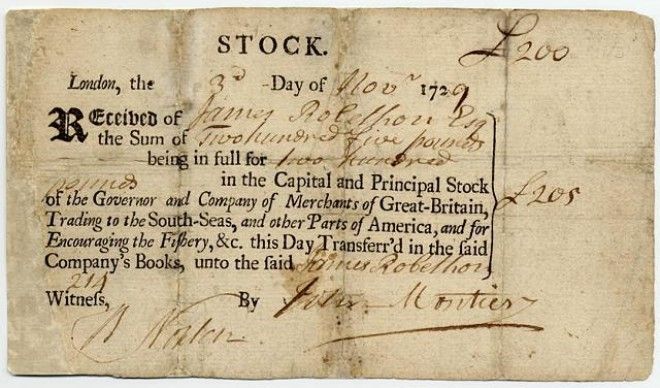 STOCK.
£200
London, the 3d Day of Novr 1729
REceived of James Robethon Esq
the Sum of Two hundred five pounds
being in full for two hundred
pounds in the Capital and Principal Stock
of the Governor and Company of Merchants of Great-Britain,
£205
Trading to the South-Seas, and other Parts of America, and for
Encouraging the Fiſhery, &c. this Day Transferr'd in the said
Company's Books, unto the said James Robethon
214
Witneſs, By John